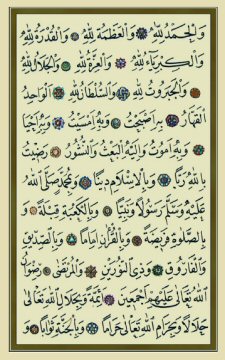 وَالْحَمْدُ لِلّٰهِ وَالْعَظَمَةُ لِلّٰهِ وَالْقُدْرَةُ لِلّٰهِ
وَالْكِبْرِيَاءُ لِلّٰهِ وَالْعِزَّةُ لِلّٰهِ وَالْجَلَالُ لِلّٰهِ
وَالْجَبَرُوتُ لِلّٰهِ وَالسُّلْطَانُ لِلّٰهِ الْوَاحِدِ
الْقَهَّارِ بِرَبِّ اَصْبَحْتُ وَبِهِ اَمْسَيْتُ وَبِهِ اَحْيَا
وَبِهِ اَمُوتُ وَاِلَيْهِ الْبَعْثُ وَالنُّشُورُ رَضِيتُ
بِاللّٰهِ رَبًّا وَبِالْاِسْلَامِ دِينًا وَبِمُحَمَّدٍ صَلَّى اللّٰهُ
عَلَيْهِ وَسَلَّمَ رَسُولًا وَنَبِيًّا وَبِالْكَعْبَةِ قِبْلَةً وَ
بِالصَّلٰوةِ فَرِيضَةً وَبِالْقُرْاٰنِ اِمَامًا وَبِالصِّدِّيقِ
وَالْفَارُوقِ وَذِي النُّورَيْنِ وَالْمُرْتَضٰى رِضْوَانُ
اللّٰهِ تَعَالٰى عَلَيْهِمْ اَجْمَعِينَ اَئِمَّةً وَبِحَلَالِ اللّٰهِ تَعَالٰى
حَلَالًا وَبِحَرَامِ اللّٰهِ تَعَالٰى حَرَامًا وَبِالْجَنَّةِ ثَوَابًا وَ